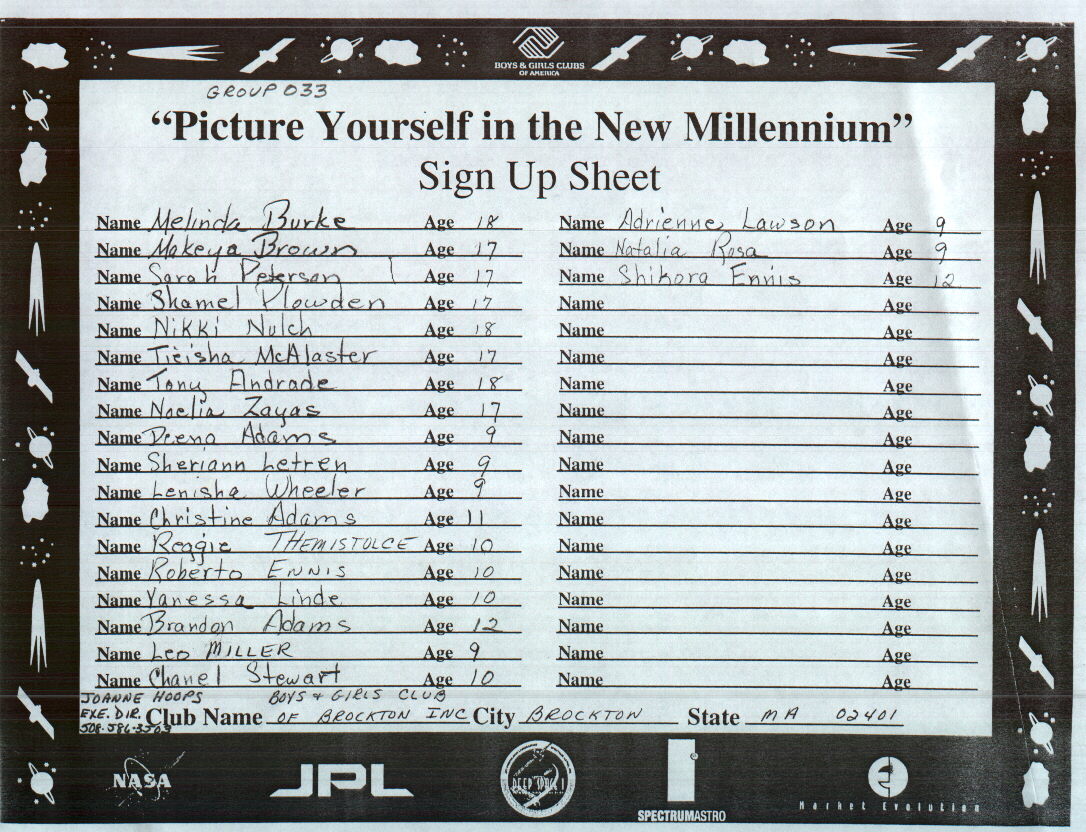 BOYS & GIRLS CLUBS
OF AMERICA
GROUP 033
“Picture Yourself in the New Millennium”
Sign Up Sheet
Name Melinda Burke Age 18
Name Makeya Brown Age 17
Name Sarah Peterson Age 17
Name Shamel Plowden Age 17
Name Nikki Nulch Age 18
Name Tieisha McAlaster Age 17
Name Tony Andrade Age 18
Name Noelia Zayas Age 17
Name Deena Adams Age 9
Name Sheriann Letren Age 9
Name Lenisha Wheeler Age 9
Name Christine Adams Age 11
Name Reggie THEMISTOLCE Age 10
Name Roberto ENNIS Age 10
Name Vanessa Linde Age 10
Name Brandon Adams Age 12
Name Leo MILLER Age 9
Name Chanel Stewart Age 10
Name Adrienne Lawson Age 9
Name Natalia Rosa Age 9
Name Shikora Ennis Age 12
Name Age
Name Age
Name Age
Name Age
Name Age
Name Age
Name Age
Name Age
Name Age
Name Age
Name Age
Name Age
Name Age
Name Age
Name Age
JOANNE HOOPS BOYS & GIRLS CLUB
EXE. DIR. Club Name OF BROCKTON INC City BROCKTON State MA 02401
508-586-3503
NASA
JPL
DEEP SPACE 1
SPECTRUMASTRO
Market Evolution